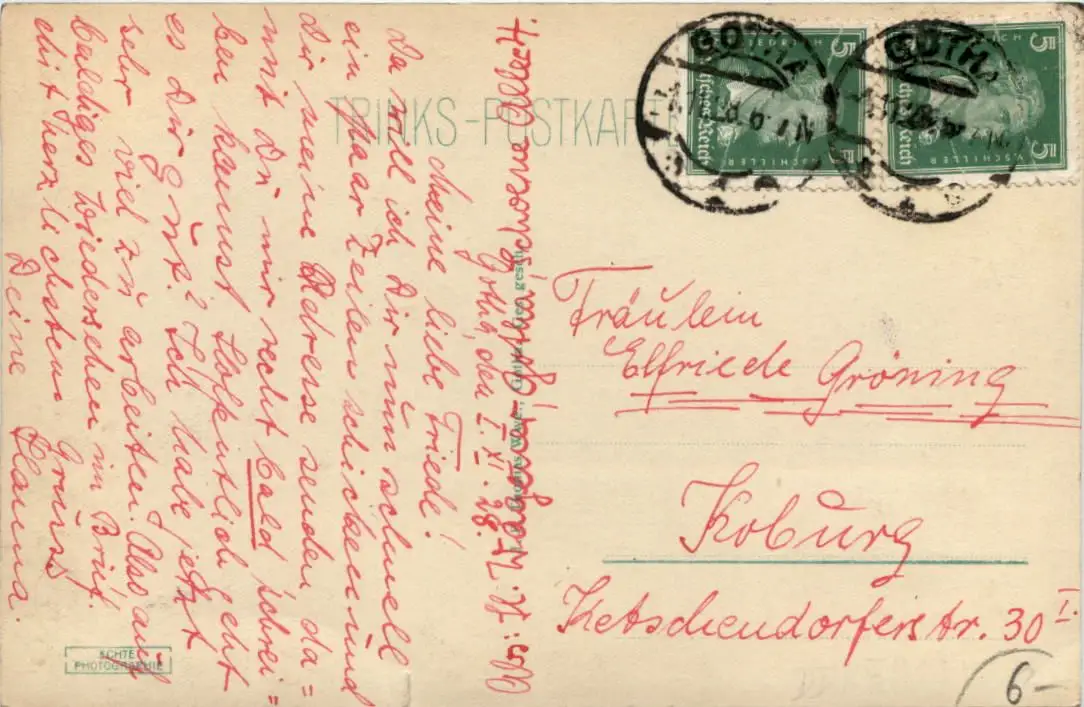 TRINKS-POSTKARTE
Gotha, den I. XI. 28.
Meine liebe Friede!
Da will ich Dir nun schnell
ein paar Zeilen schicken und
Dir meine Adresse senden, da=
mit Du mir recht bald schrei=
ben kannst. Hoffentlich geht
es Dir gut? Ich habe jetzt
sehr viel zu arbeiten. Also auf
baldiges Wiedersehen im Brief.
Mit herzlichsten Gruss
Deine Hanna.
schoene Allee 4.
ECHTE
PHOTOGRAPHIE
GOTHA
GOTHA
5 5
Deutsches Reich
V. SCHILLER
5 5
Deutsches Reich
V. SCHILLER
Fräulein
Elfriede Gröning
Koburg
Ketschendorferstr. 30 I.
6-